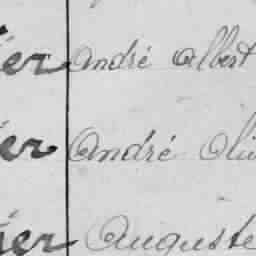 er André Albert
er André Oliv
er Auguste